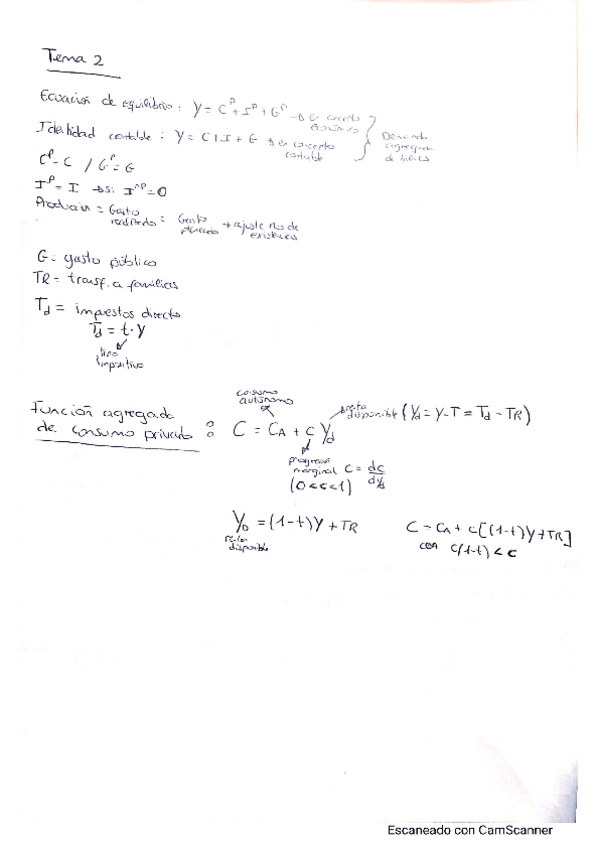 Tema 2
Ecuación de equilibrio : Y = Cᵖ + Iᵖ + Gᵖ → en concepto económico
Identidad contable : Y = C + I + G → en concepto contable
Demanda agregada de bienes
Cᵖ = C / Gᵖ = G
Iᵖ = I → si Iⁿᵖ = 0
Producción = Gasto realizado = Gasto planeado + ajuste no de existencias
G = gasto público
TR = transf. a familias
T_d = impuestos directo
T_d = t · Y
tipo impositivo
Función agregada de consumo privado : C = C_A + c Y_d
consumo autónomo
renta disponible (Y_d = Y - T = T_d - TR)
marginal c = dc/dY_d
(0 < c < 1)
Y_D = (1-t)Y + TR
renta disponible
C = C_A + c[(1-t)Y + TR]
con c(1-t) < c
Escaneado con CamScanner